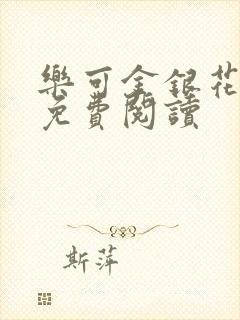 樂可金銀花
免費閱讀
斯萍